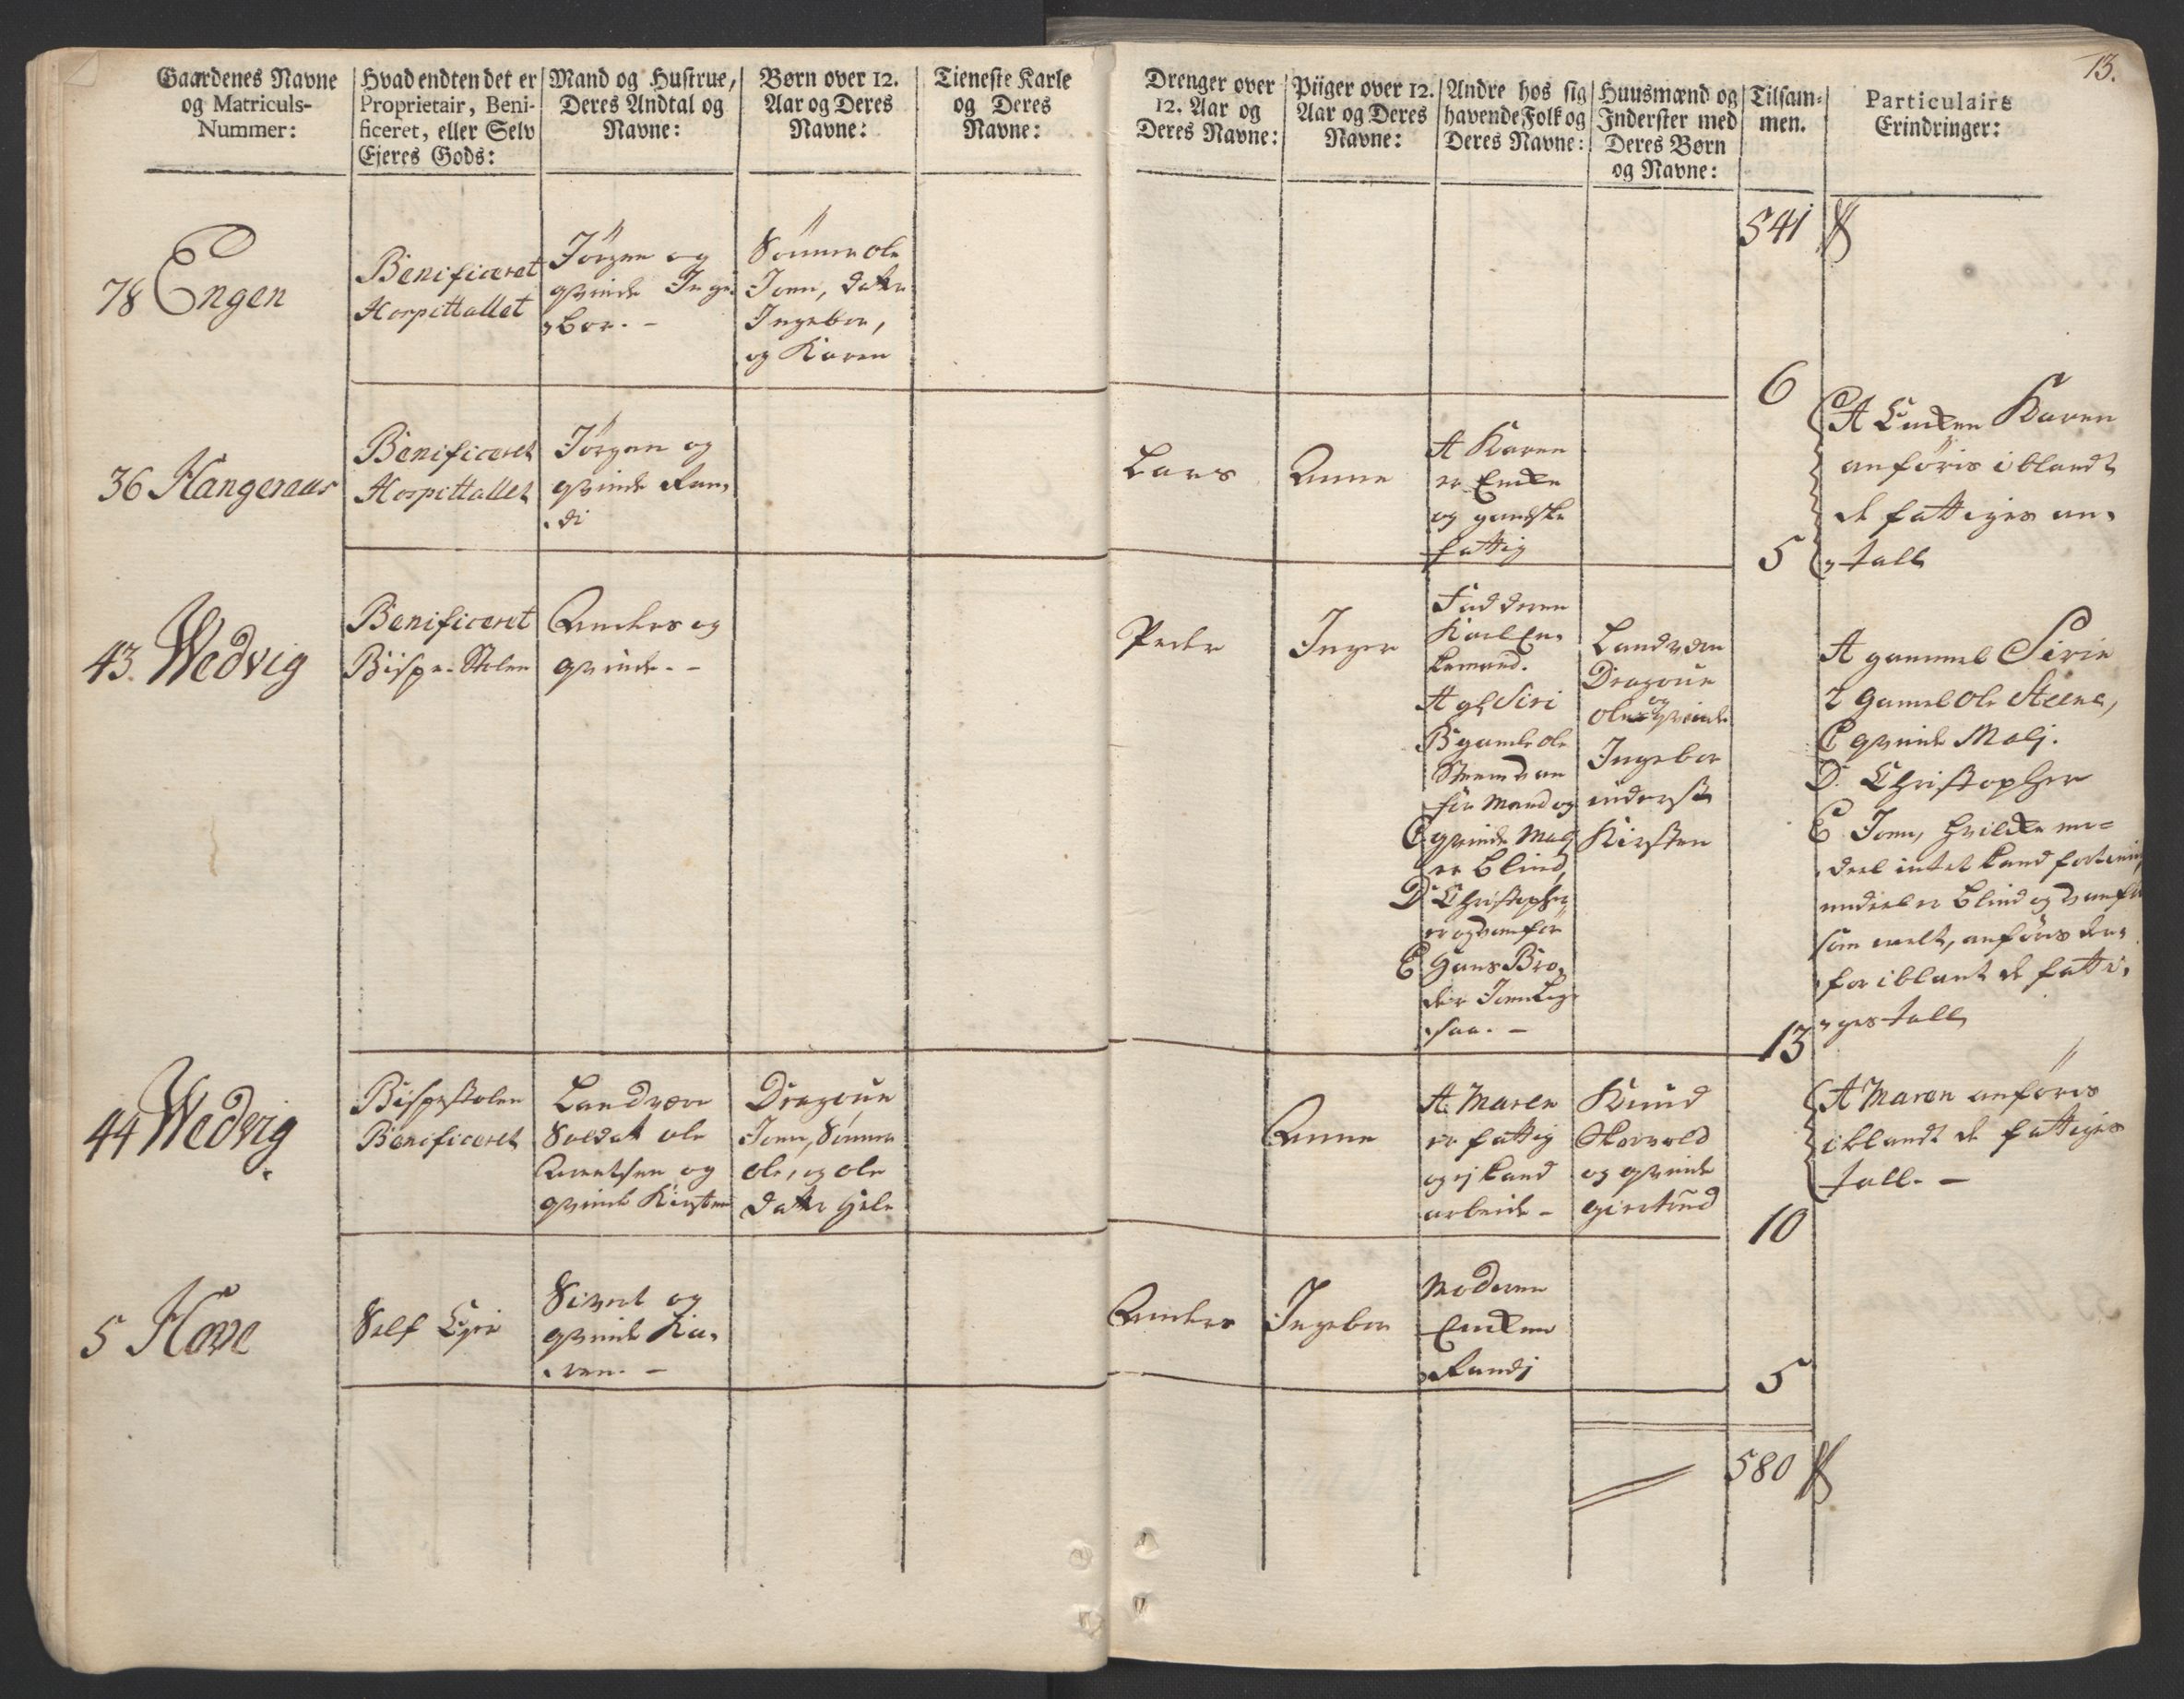 13.
Gaardenes Navne
og Matriculs-
Nummer:
Hvad endten det er
Proprietair, Beni-
ficeret, eller Selv
Ejeres Gods:
Mand og Hustrue,
Deres Andtal og
Navne:
Børn over 12.
Aar og Deres
Navne:
Tieneste Karle
og Deres
Navne:
Drenger over
12. Aar og
Deres Navne:
Piiger over 12.
Aar og Deres
Navne:
Andre hos sig
havende Folk og
Deres Navne:
Huusmænd og
Inderster med
Deres Børn
og Navne:
Tilsam-
men.
Particulaire
Erindringer:
541
78 Engen
Benificeret
Hospitallet
Jörgen og
qvinde Inge
bor. -
Sönner ole
Joen, datter
Ingebor,
og Karen
6
36 Hangeraas
Benificeret
Hospitallet
Jörgen og
qvinde Ran,
di
Lars
Anne
A Karen
er Encke
og gandske
fattig
5
A Encken Karen
anföris iblandt
de fattiges an,
tall
43. Wedvig
Benificeret
Bispe-Stolen
Anders og
qvinde. -
Peder
Inger
Fadderen
Karl En,
kemand.
A gl. Siri
B gamle ole
Steen van
för Mand og
C qvinde Malj
er blind,
D Christopher
er og vanför
E hans Bro,
der Joen lige
saa. -
Landværn
Dragoun
ole og qvinde
Ingebor
inderste
Kirsten
13
A gammel Sirie
2 gamel ole Steene,
C qvinde Malj.
D. Christopher
E Joen, hvilcke en-
deel intet kand fortienne
endeel er blind og vanför
som melt, anföris der,
for iblant de fatti,
ges tall
44 Wedvig
Bispestolen
Benificeret
Landværn
Soldat ole
Arentsen og
qvinde Kirsten
Dragoun
Joen, Sönner
ole, og ole
datter Gele
Anne
A. Maren
er fattig
og ej kand
arbeide -
Knud
Skorvold
og qvinde
giertrud
10
A Maren anföris
iblandt de fattiges
tall. -
5 Hove
Self Ejer
Sivert og
qvinde Ka,
ren. -
Anders
Ingebor
Moderen
Encken
Randj
5
580